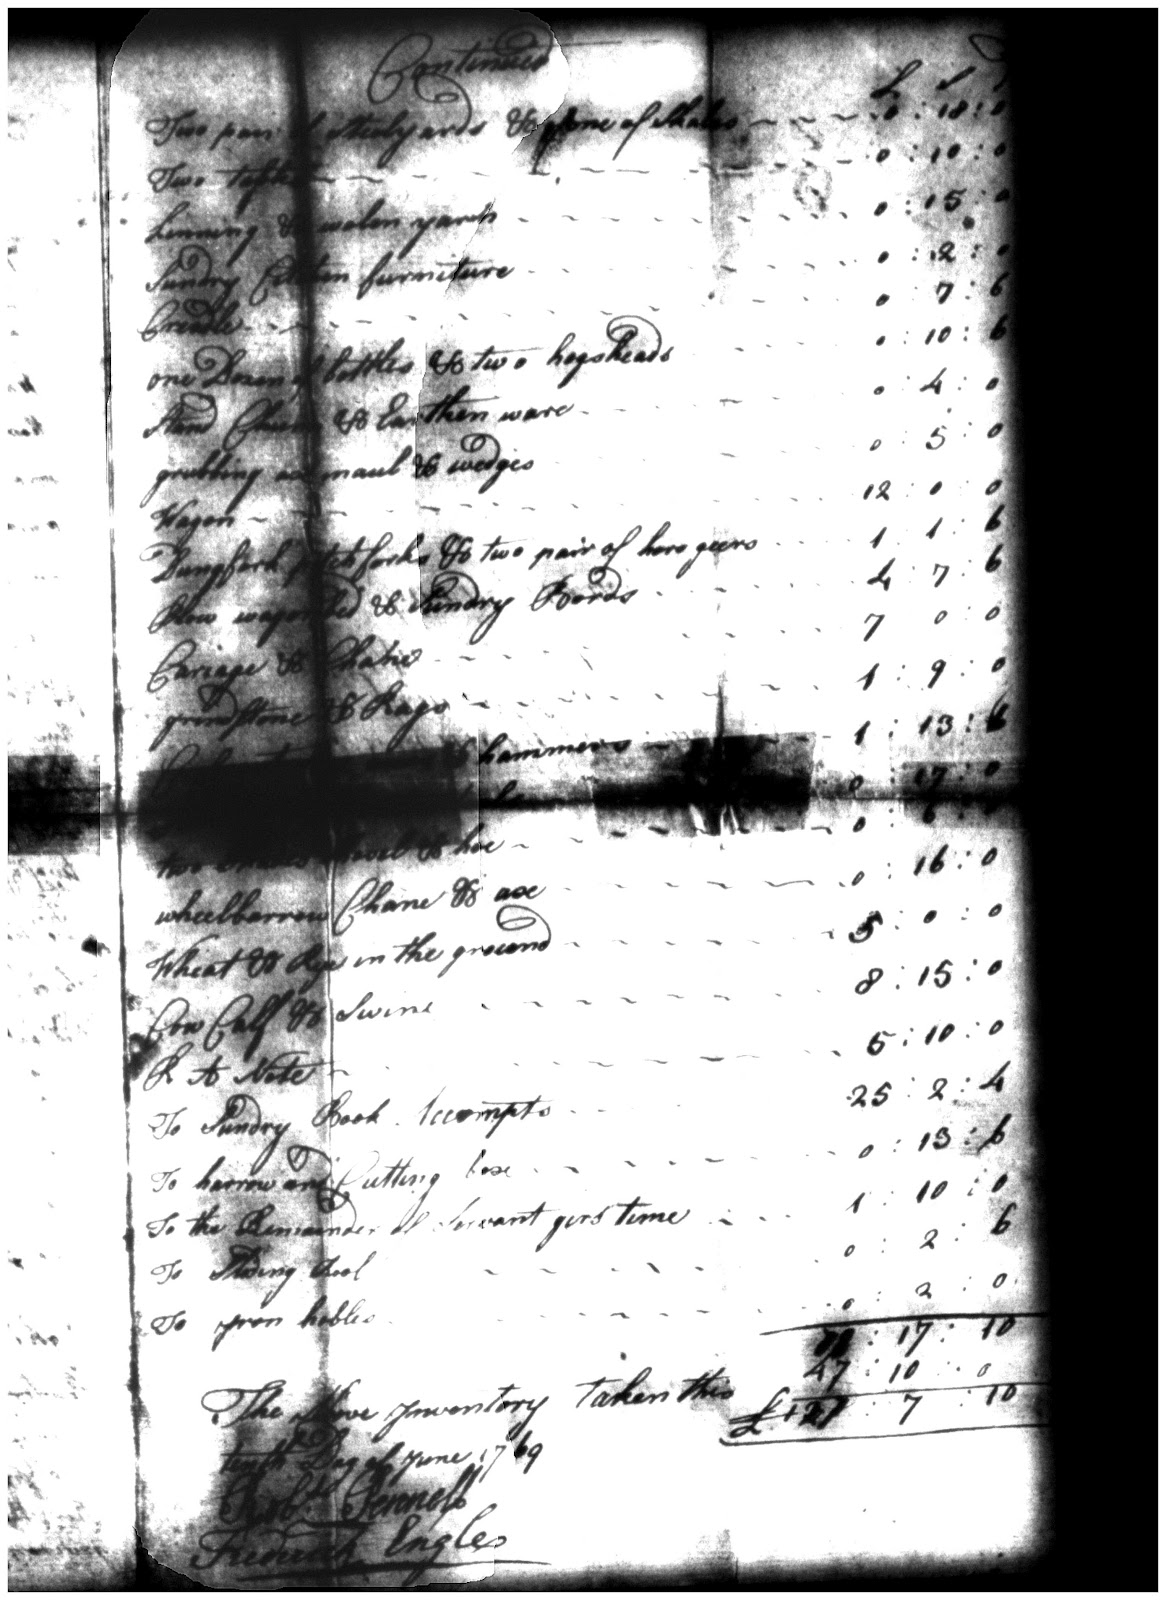 Continued
£ s
Two pair of steelyards & stone of Skales 0 : 18 : 0
Two 0 : 10 : 0
Linning & wolen yarn 0 : 15 : 0
Sundry furniture 0 : 2 : 0
Creadle 0 : 7 : 6
one Dozen of bottles & two hogsheads 0 : 10 : 6
& Earthen ware 0 : 4 : 0
grubbing maul & wedges 0 : 5 : 0
Wagon 12 : 0 : 0
Dungfork pitchforks & two pair of hors geers 1 : 1 : 6
Plow & Sundry Bords 4 : 7 : 6
Cariage & 7 0 0
grindstone & Bags 1 : 9 : 0
hammers 1 : 13 : 6
0 : 17 : 0
two shovel & hoe 0 : 6 :
wheelbarrow Chane & axe 0 : 16 : 0
Wheat & Rye in the ground 5 : 0 : 0
Cow Calf & Swine 8 : 15 : 0
A Note 5 : 10 : 0
To Sundry Book Accompts 25 : 2 : 4
To harrow and Cutting box 0 : 13 : 6
To the Remainder of Servant girs time 1 : 10 : 0
To 0 : 2 : 6
To yron hobles 0 : 2 : 0
: 17 : 10
47 : 10 : 0
The Above Ynventory taken this £127 : 7 : 10
tenth Day of June 1769
Frederick Engles